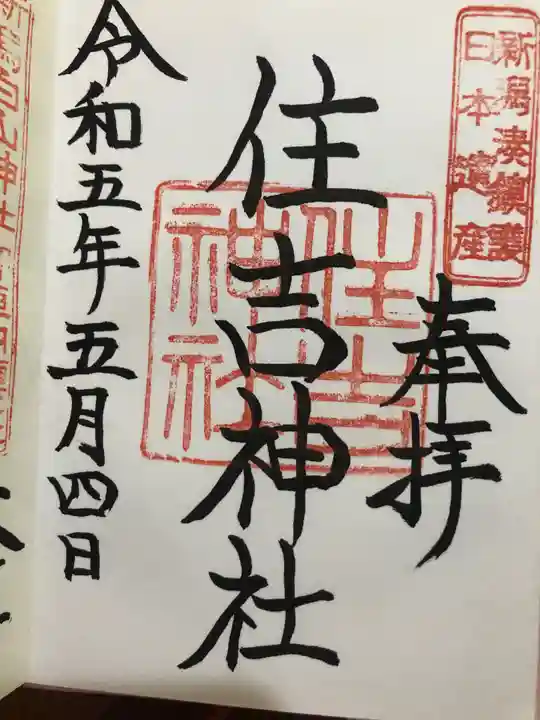 新潟湊鎮護
日本遺産
奉拝
住吉神社
住吉
神社
令和五年五月四日